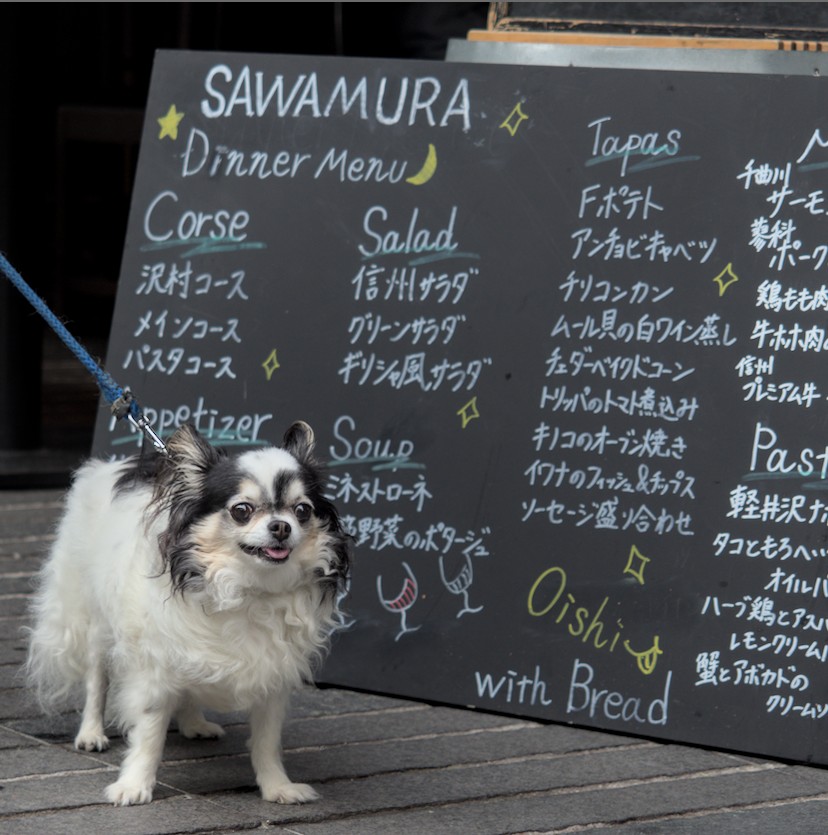 SAWAMURA
Dinner Menu
Corse
沢村コース
メインコース
パスタコース
Appetizer
Salad
信州サラダ
グリーンサラダ
ギリシャ風サラダ
Soup
ミネストローネ
野菜のポタージュ
Tapas
Fポテト
アンチョビキャベツ
チリコンカン
ムール貝の白ワイン蒸し
チェダーベイクドコーン
トリッパのトマト煮込み
キノコのオーブン焼き
イワナのフィッシュ&チップス
ソーセージ盛り合わせ
Oishii
with Bread
千曲川
サーモ
蓼科
ポーク
鶏もも肉
牛ホホ肉の
信州
プレミアム牛
Past
軽井沢ナポ
タコともろへ…
オイルパ
ハーブ鶏とアスパ
レモンクリーム
蟹とアボカドの
クリームソ